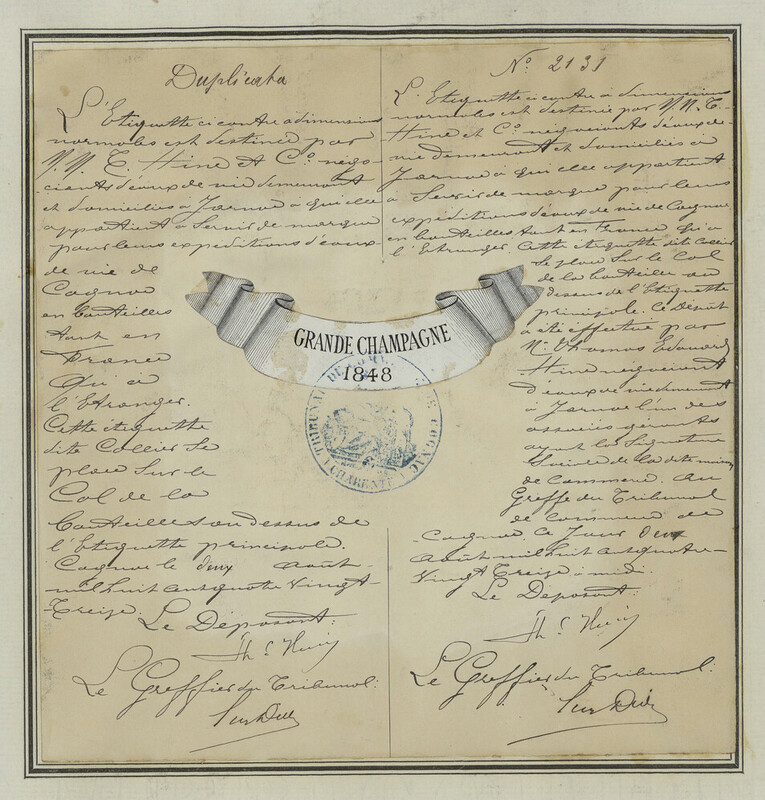 Duplicata
L'Etiquette ci contre à dimensions
normales est destinée par
M.M. T. Hine et Co. négo-
ciants d'eaux de vie demeurant
et domiciliés à Jarnac à qui elle
appartient à Servir de marque
pour leurs expéditions d'eaux
de vie de
Cognac
en bouteilles
tant en
France
qu'à
l'Etranger.
Cette étiquette
dite Collier se
place sur le
Col de la
bouteille au dessus de
l'étiquette principale.
Cognac le deux Août
mil huit cent quatre vingt
treize.
Le Déposant:
Th. E. Hine
Le Greffier du Tribunal:
No. 2131
L'Etiquette ci contre à dimensions
normales est destinée par M.M. T.
Hine et Co. négociants d'eaux de
vie demeurant et domiciliés à
Jarnac à qui elle appartient
à Servir de marque pour leurs
expéditions d'eaux de vie de Cognac
en bouteilles tant en France qu'à
l'Etranger. Cette étiquette dite Collier
se place sur le Col
de la bouteille au
dessus de l'Etiquette
principale. Ce Dépôt
a été effectué par
M. Thomas Edouard
Hine négociant
d'eaux de vie demeurant
à Jarnac l'un des
associés gérants
ayant la Signature
Sociale de la dite maison
de Commerce. Au
Greffe du Tribunal
de Commerce de
Cognac, ce Jour deux
Août mil huit cent quatre-
vingt treize à midi.
Le Déposant:
Th. E. Hine
Le Greffier du Tribunal:
GRANDE CHAMPAGNE
1848
TRIBUNAL DE COMMERCE DE COGNAC
(CHARENTE)